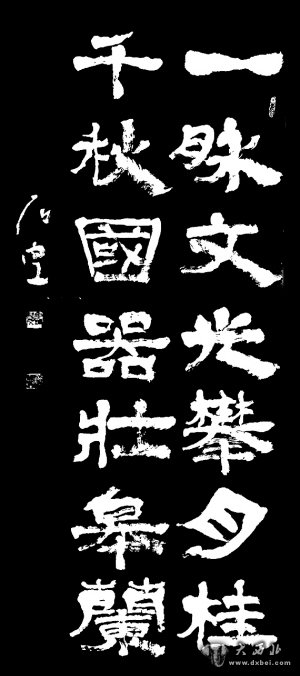 一脉文光攀月桂
千秋國器壯皋蘭
大西北
www.dxbei.com